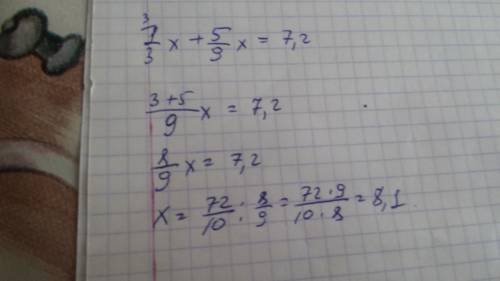 3
1/3 x + 5/9 x = 7,2
3+5/9 x = 7,2
8/9 x = 7,2
x = 72/10 : 8/9 = 72·9/10·8 = 8,1